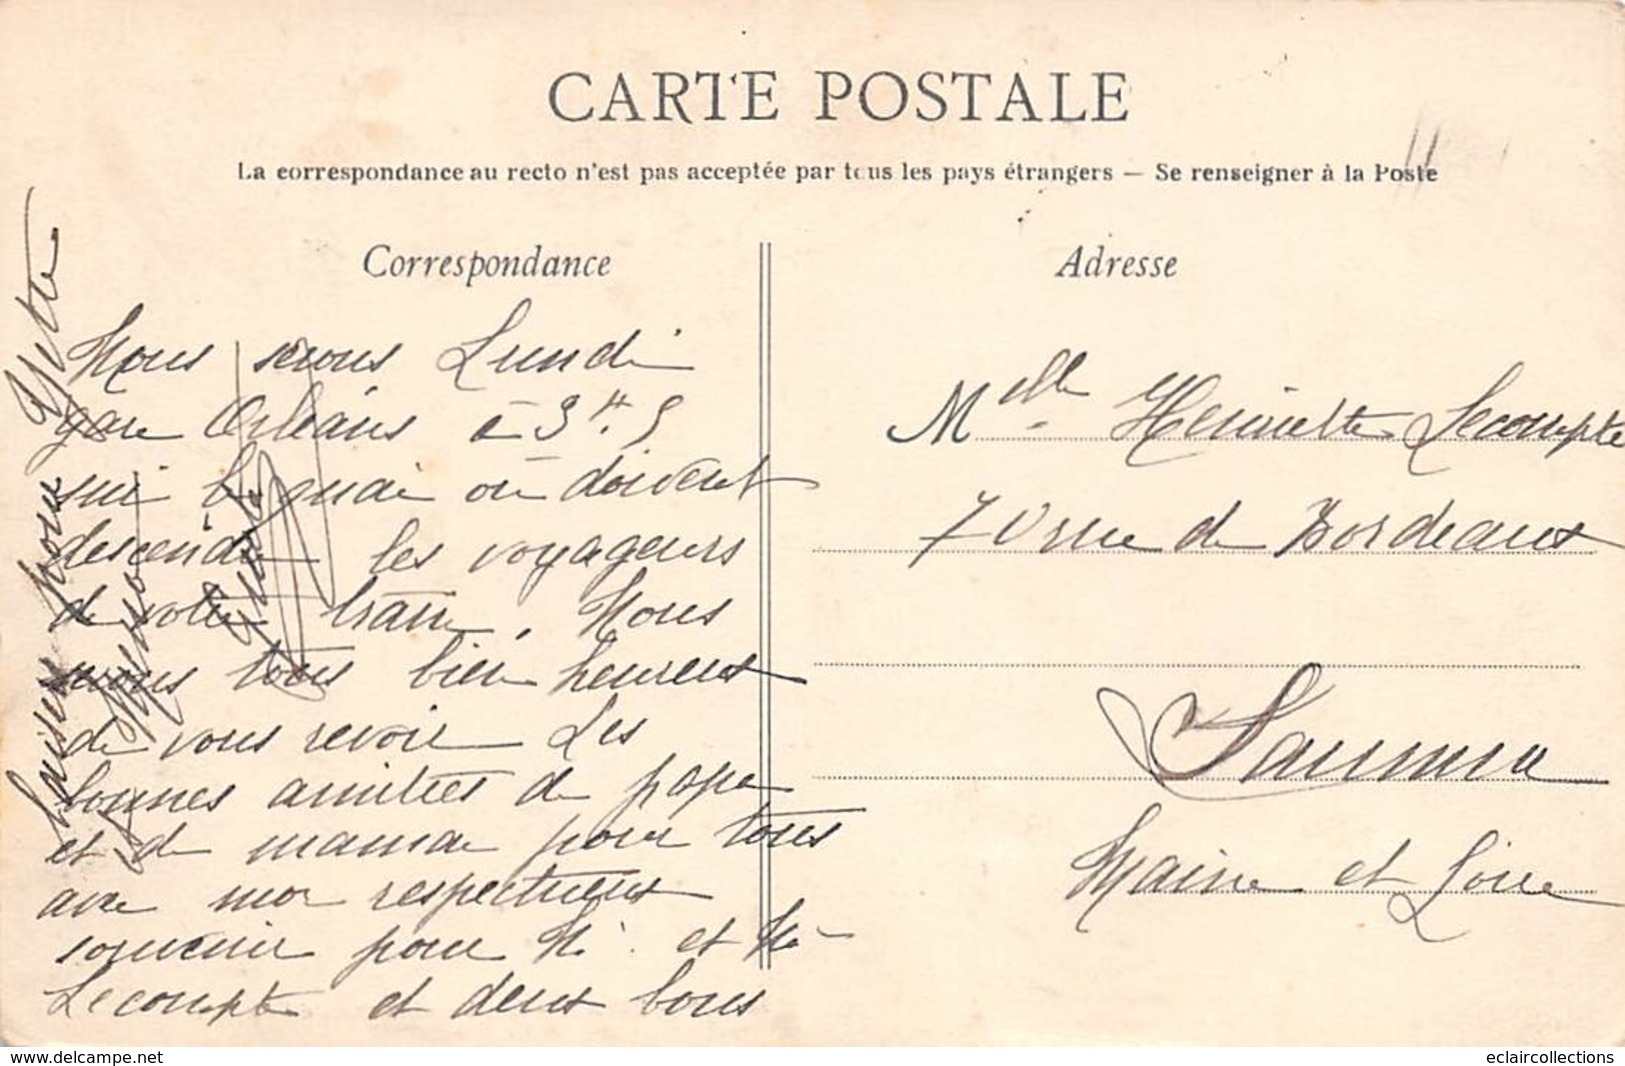 CARTE POSTALE
La correspondance au recto n'est pas acceptée par tous les pays étrangers — Se renseigner à la Poste
Correspondance
Adresse
Nous serons Lundi
gare Orléans à 3 H. 5
sur le quai où doivent
descendre les voyageurs
de votre train. Nous
serons tous bien heureux
de vous revoir Les
bonnes amitiés de papa
et de maman pour tous
avec mon respectueux
souvenir pour M. et Me
Lecompte et deux bons
baisers pour
Yvette
Melle Henriette Lecompte
70 rue de Bordeaux
Saumur
Maine et Loire
www.delcampe.net
eclaircollections